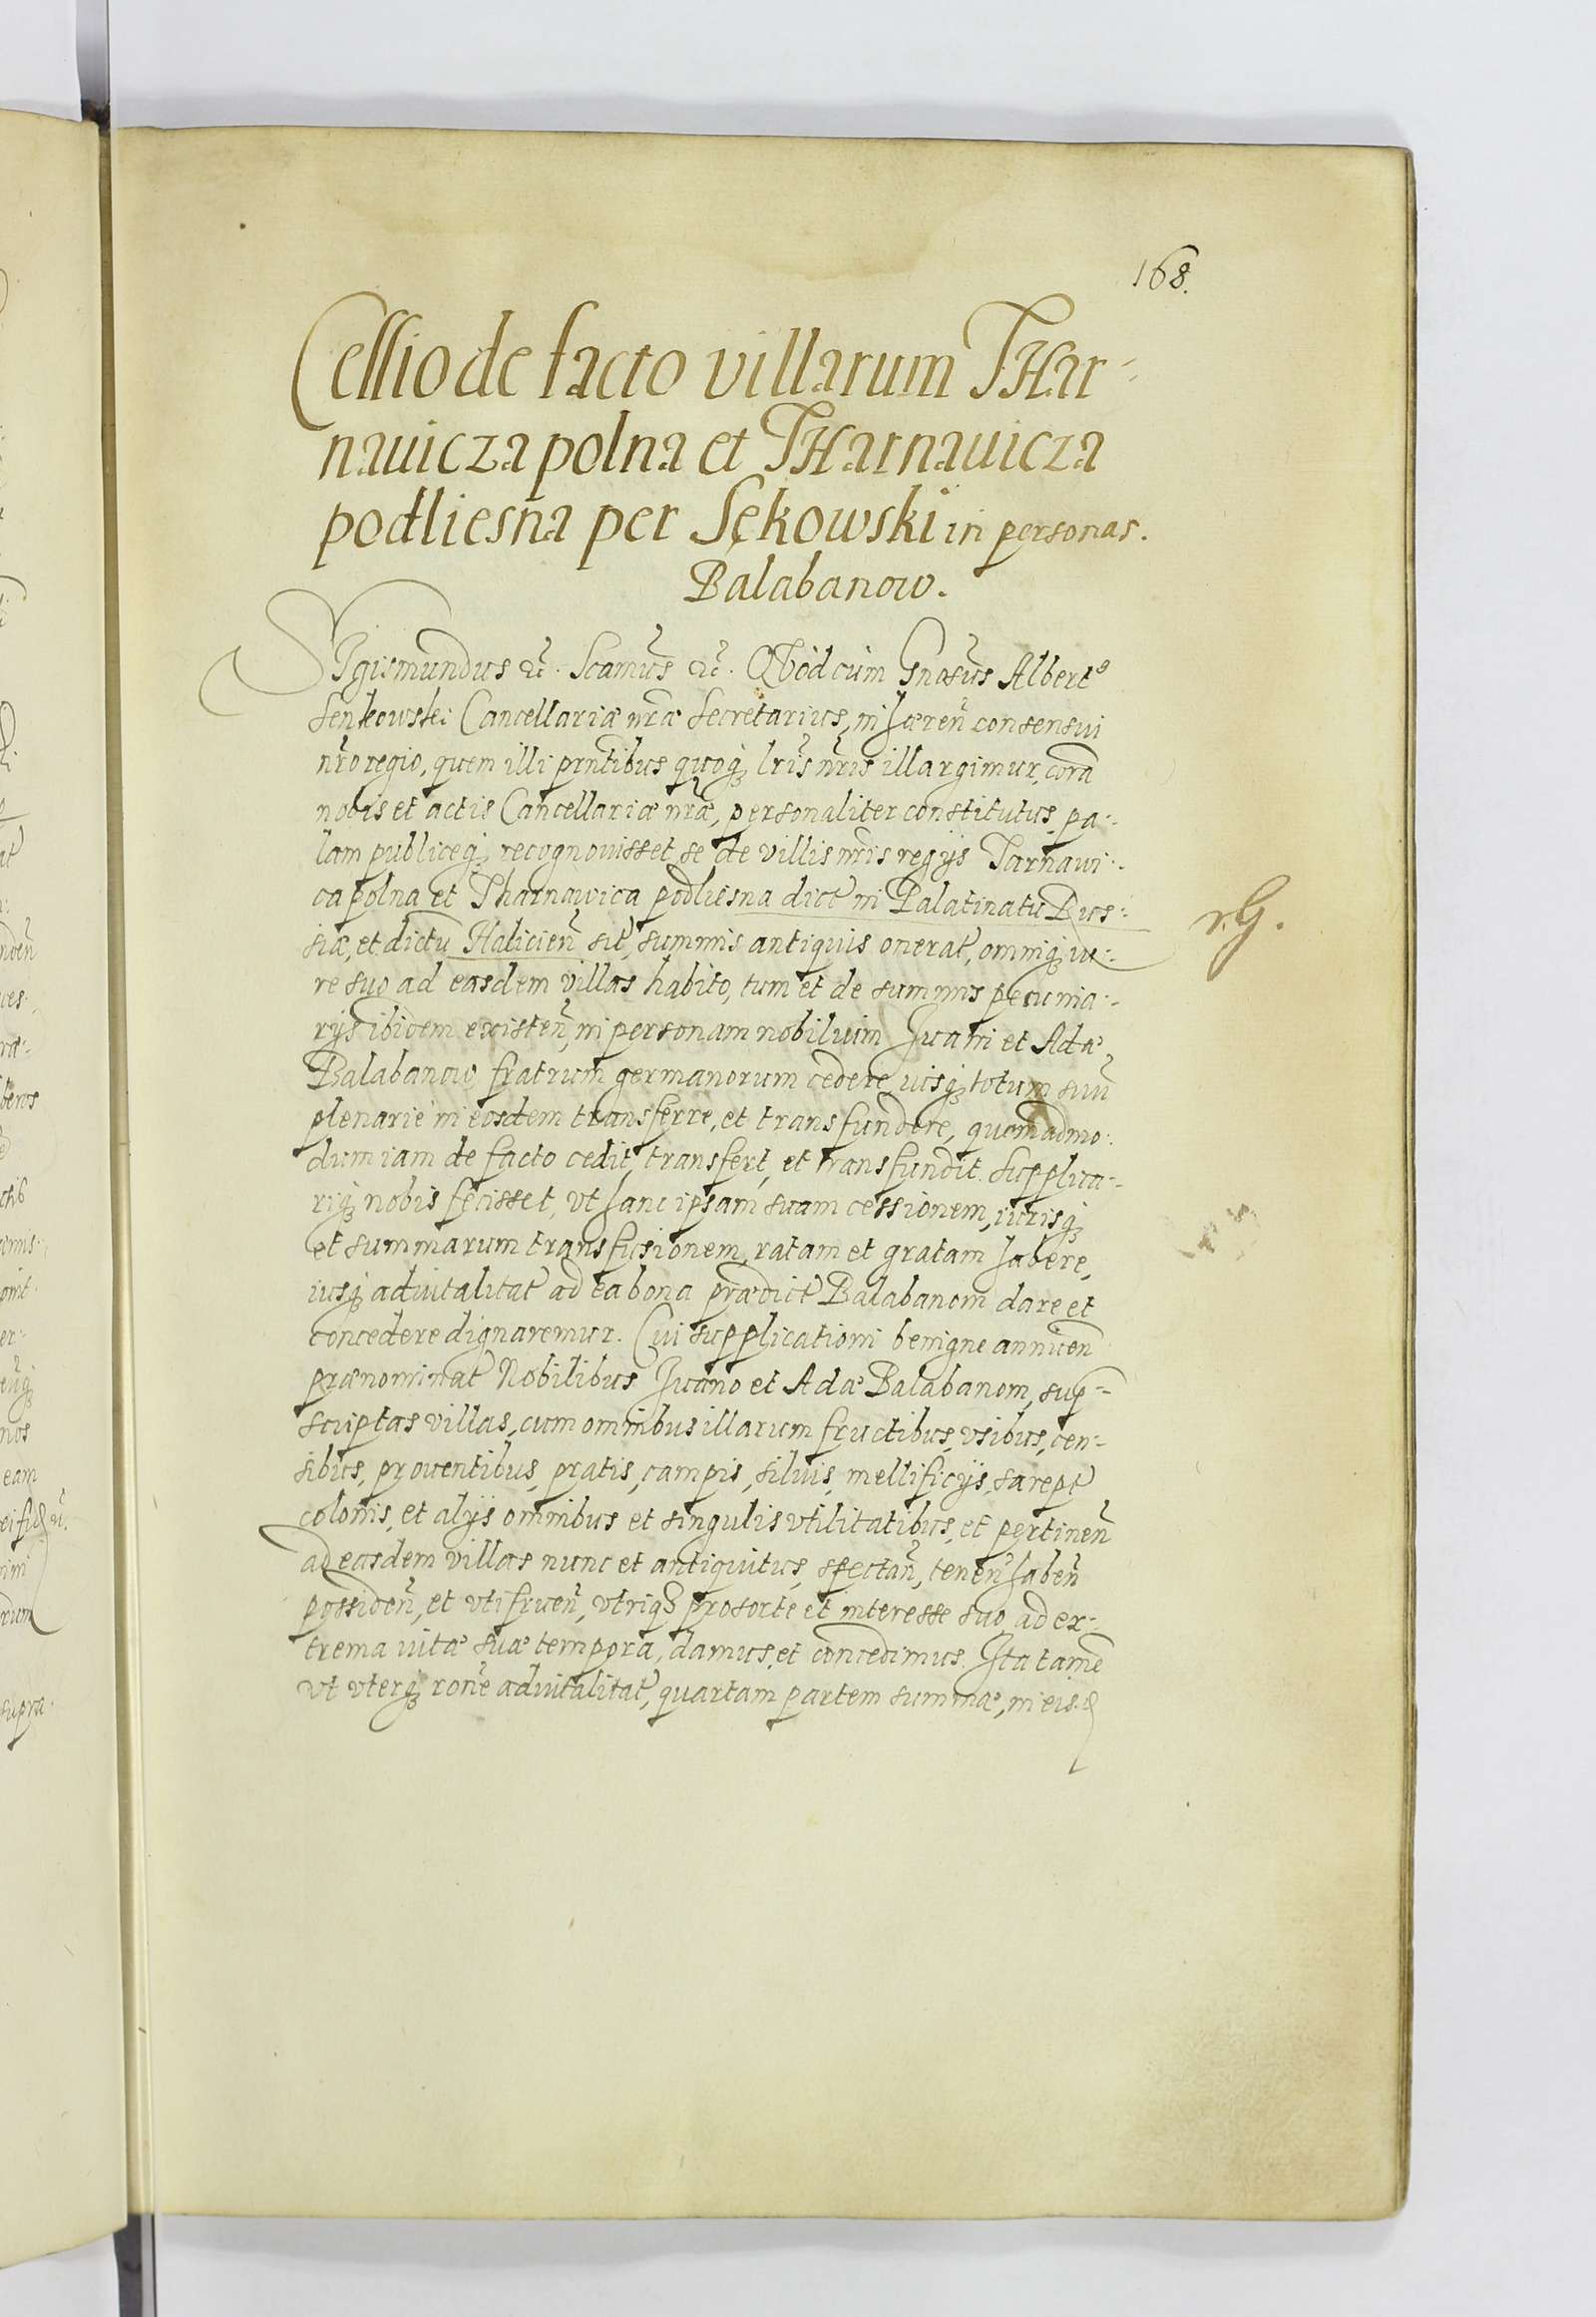 168.
Cessio de facto villarum THar-
nauicza polna et THarnauicza
podliesna per Sękowski in personas.
Balabanow.
SIgismundus &c̃. Scamũs &c̃. QVod cum Gnosũs Albertꝰ
Senkowski Cancellariæ nr̃æ Secretarius, inhæreñ consensui
nr̃o regio, quem illi prñtibus quoqꝫ lr̃is nr̃is illargimur, corã
nobis et actis Cancellariæ nr̃æ, personaliter constitutus, pa-
lam publiceqꝫ recognouisset, se de villis nr̃is regijs Tarnawi-
ca polna et Tharnawica podliesna dict̃ in Palatinatu Rus-
siæ, et dictũ Halicieñ sit̃, summis antiquis onerat̃, omniqꝫ iu-
re suo ad easdem villas habito, tum et de summis pecunia-
rijs ibidem existeñ, in personam nobilium Iuani et Adæ
Balabanow fratrum germanorum cedere, iusqꝫ totum suũ
plenarie in eosdem transferre, et transfundere, quemadmo-
dum iam de facto cedit, transfert, et transfundit. Supplica-
riqꝫ nobis fecisset, vt hanc ipsam suam cessionem, iurisqꝫ
et summarum transfusionem, ratam et gratam habere,
iusqꝫ aduitalitat̃ ad ea bona prædict̃ Balabanom dare et
concedere dignaremur. Cui supplicationi benigne annueñ
prænominat̃ Nobilibus Iuano et Adæ Balabanom, sup-
scriptas villas, cum omnibus illarum fructibus, vsibus, cen-
sibus, prouentibus, pratis, campis, siluis, mellificijs, sarept̃
colonis, et alijs omnibus et singulis vtilitatibus, et pertineñ
ad easdem villas nunc et antiquitus, spectañ, teneñ habeñ
possideñ, et vti frueñ, vtriqꝫ pro sorte et interesse suo, ad ex-
trema vitæ suæ tempora, damus, et concedimus. Ita tamẽ
vt vterqꝫ ronẽ aduitalitat̃, quartam partem summæ, in eisd